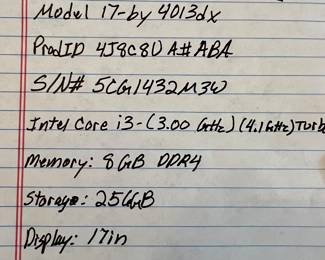 Model 17-by 4013dx
ProdID 4J8C8UA#ABA
S/N# 5CG1432M3W
Intel Core i3-(3.00 GHz)(4.1GHz)Turbo
Memory: 8GB DDR4
Storage: 256GB
Display: 17in